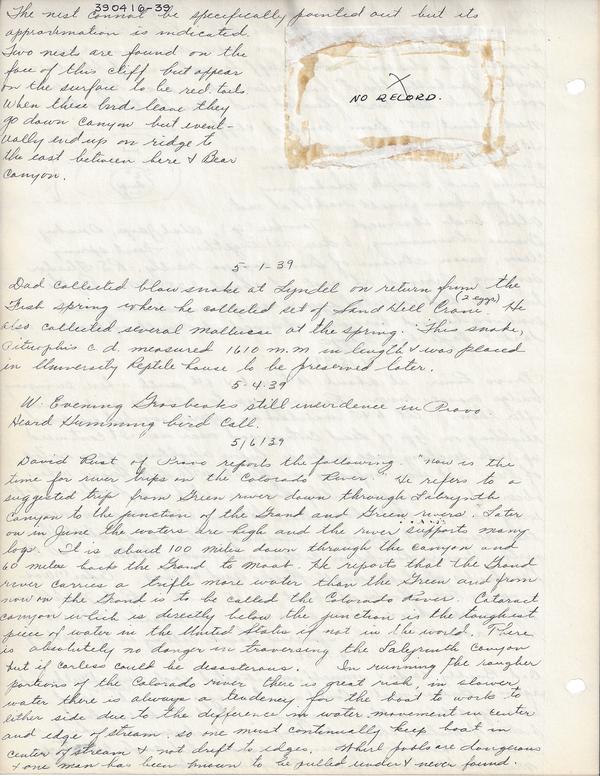 390416-39
The nest cannot be specifically pointed out but its
approximation is indicated.
Two nests are found on the
face of this cliff but appear
on the surface to be red tails.
When these birds leave they
go down canyon but event-
ually end up on ridge to
the east between here & Bear
Canyon.
X
NO RECORD.
5-1-39
Dad collected blow snake at Lyndel on return from the
Fish spring where he collected set of Sand Hill Crane (2 eggs). He
also collected several mollusca at the spring. This snake,
Pituophis c. d. measured 1610 m.m. in length & was placed
in University Reptile house to be preserved later.
5-4-39
W. Evening Grosbeaks still inevidence in Provo.
Heard Humming bird call.
5/6/39
David Rust of Provo reports the following. "now is the
time for river trips on the Colorado River." He refers to a
suggested trip from Green river down through Labrynth
Canyon to the junction of the Grand and Green rivers. Later
on in June the waters are high and the river supports many
logs. It is about 100 miles down through the canyon and
60 miles back the Grand to Moab. He reports that the Grand
river carries a trifle more water than the Green and from
now on the Grand is to be called the Colorado River. Cataract
canyon which is directly below the junction is the toughest
piece of water in the United States if not in the world. There
is absolutely no danger in traversing the Labyrinth Canyon
but if carless could be desasterous. In running the rougher
portions of the Colorado river there is great risk, in slower
water there is always a tendency for the boat to work to
either side due to the difference in water movement in center
and edge of stream. so one must continually keep boat in
center of stream & not drift to edges. Whirl pools are dangerous
& one man has been known to be pulled under & never found.